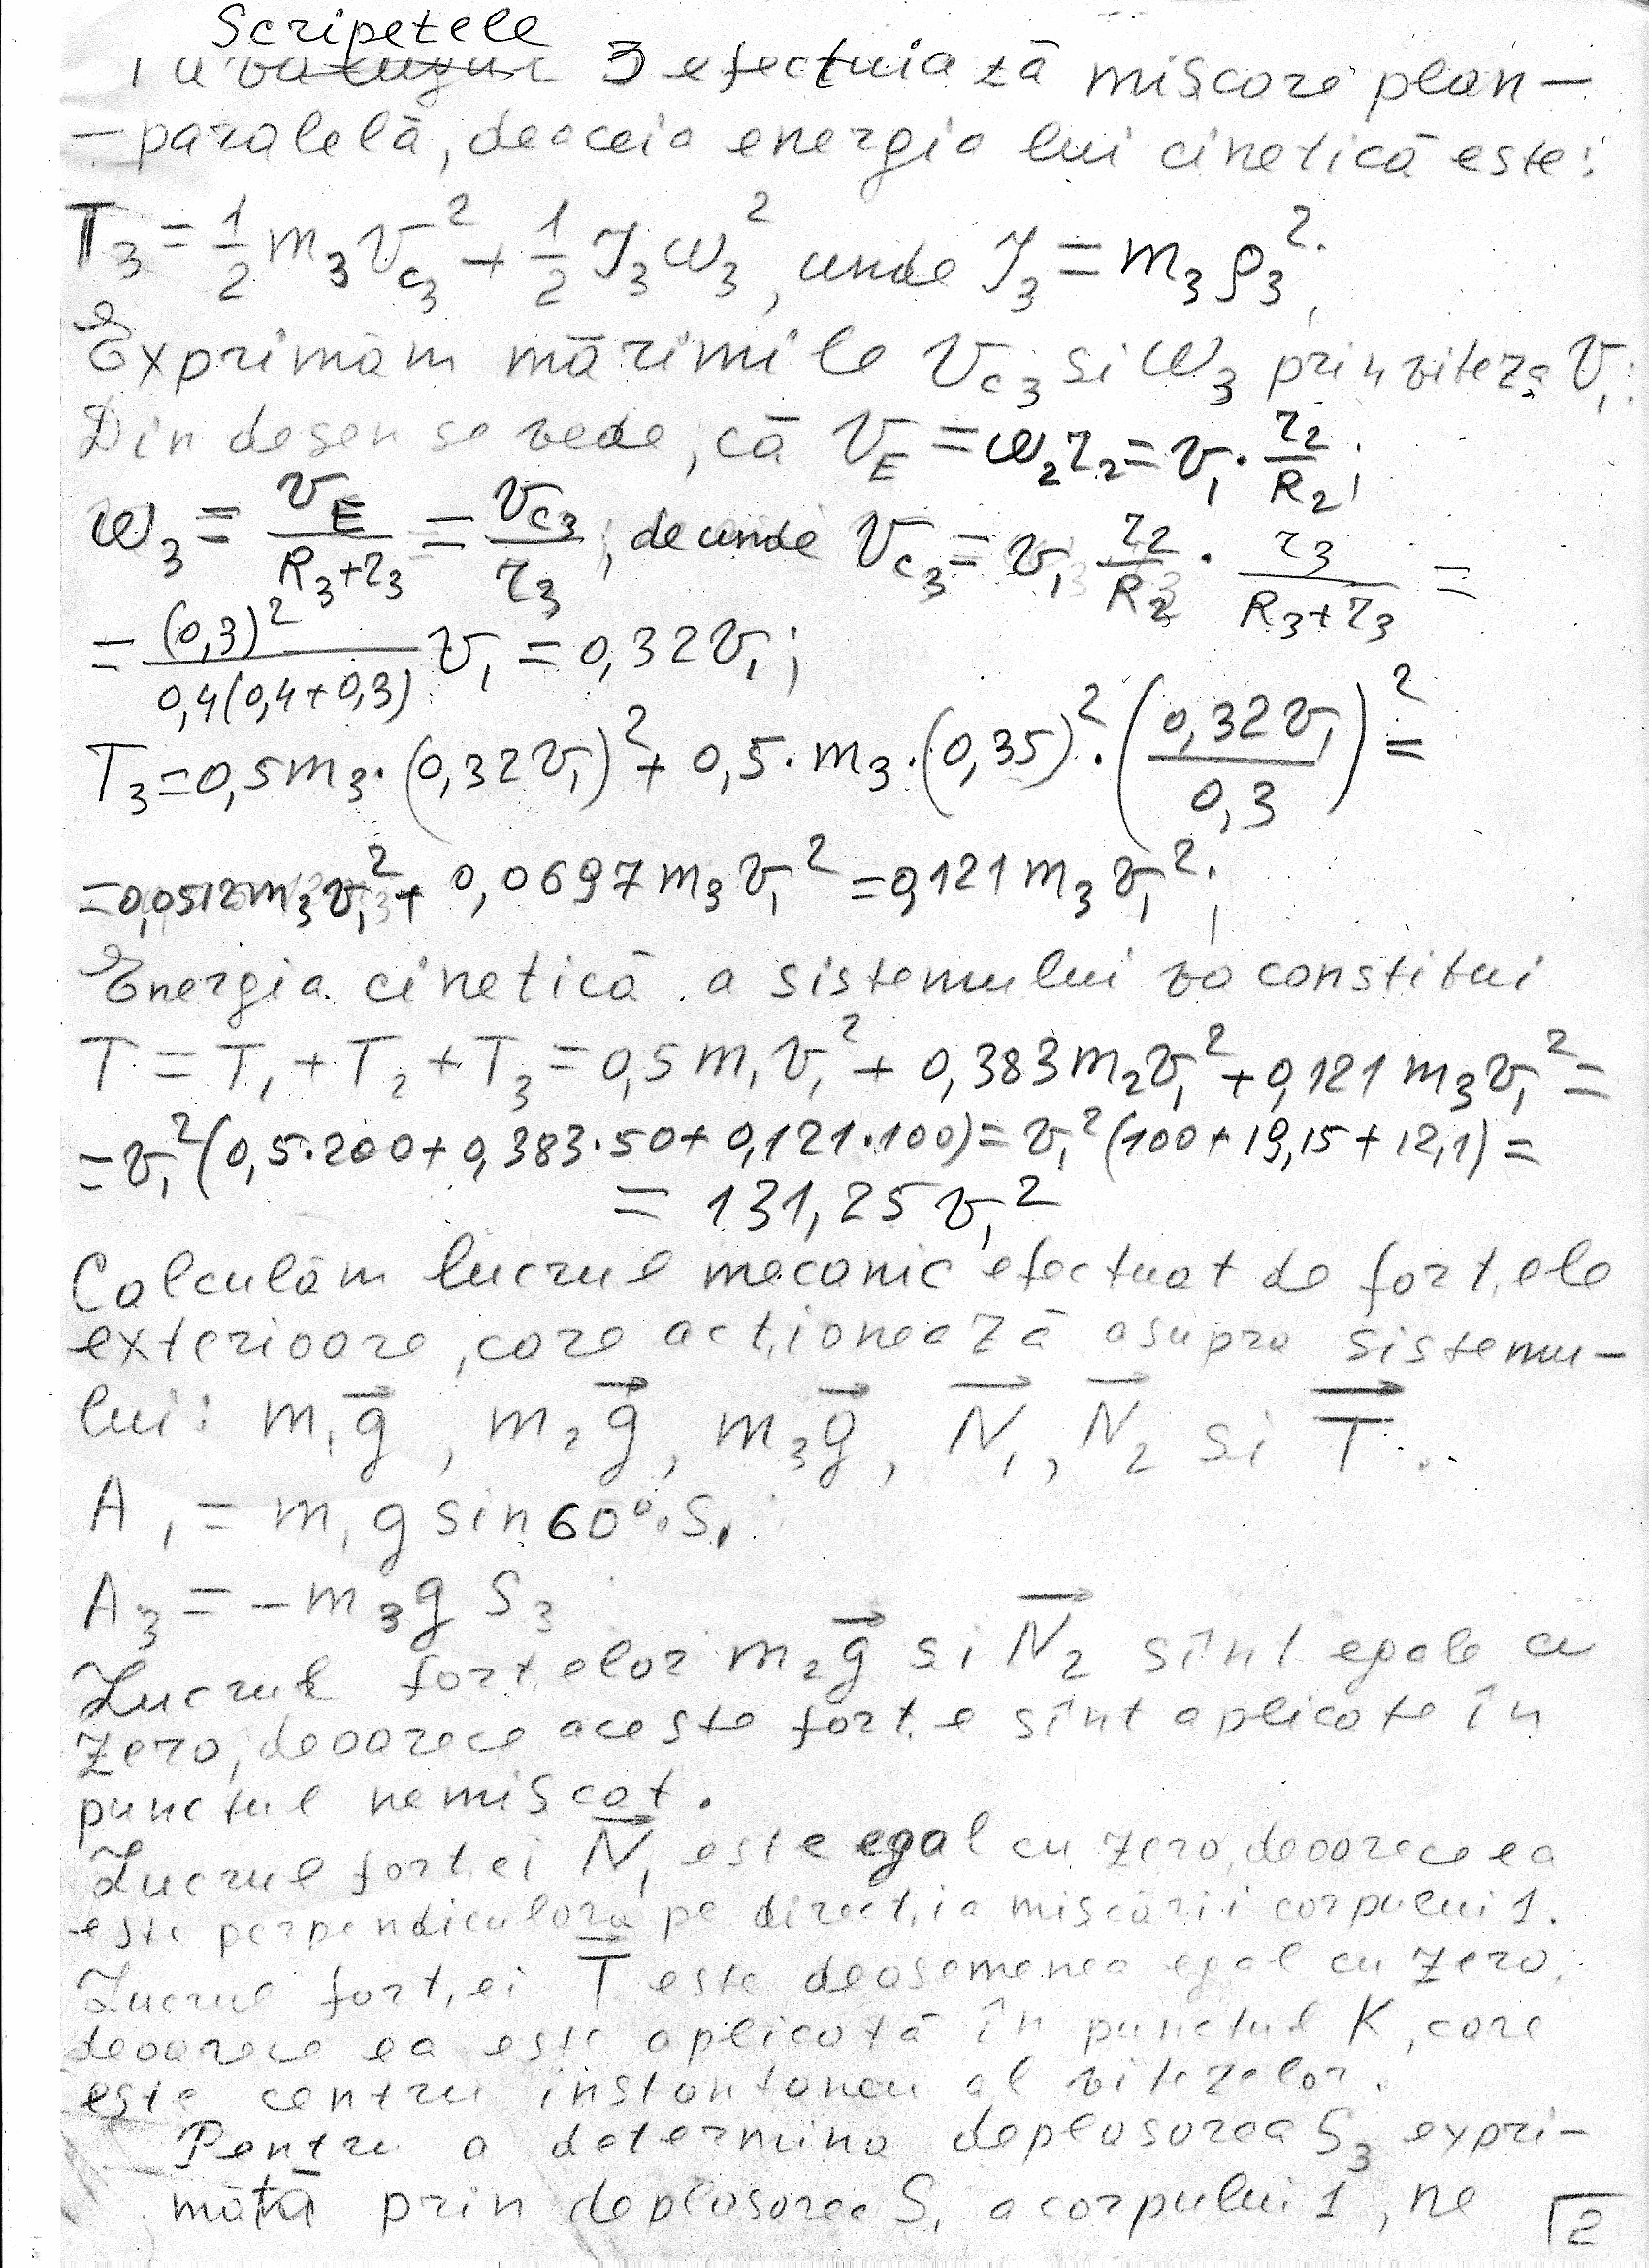 Scripetele
3 efectuiază mișcare plan-
-paralelă, deaceia energia lui cinetică este:
T₃ = 1/2 m₃ v_c₃² + 1/2 J₃ ω₃², unde J₃ = m₃ ρ₃²;
Exprimăm mărimile v_c₃ si ω₃ prin viteza v₁:
Din desen se vede, că v_E = ω₂ r₂ = v₁ · r₂/R₂;
ω₃ = v_E/(R₃+r₃) = v_c₃/r₃; de unde v_c₃ = v₁ r₂/R₂ · r₃/(R₃+r₃) =
= (0,3)²/(0,4(0,4+0,3)) v₁ = 0,32v₁;
T₃ = 0,5m₃·(0,32v₁)² + 0,5·m₃·(0,35)²·(0,32v₁/0,3)² =
= 0,0512m₃v₁² + 0,0697m₃v₁² = 0,121m₃v₁²;
Energia cinetică a sistemului va constitui
T = T₁ + T₂ + T₃ = 0,5m₁v₁² + 0,383m₂v₁² + 0,121m₃v₁² =
= v₁²(0,5·200 + 0,383·50 + 0,121·100) = v₁²(100 + 19,15 + 12,1) =
= 131,25v₁²
Calculăm lucrul mecanic efectuat de forțele
exterioare, care acționează asupra sistemu-
lui: m₁g⃗, m₂g⃗, m₃g⃗, N⃗₁, N⃗₂ si T⃗.
A₁ = m₁g sin60°·S₁
A₃ = -m₃g S₃
Lucrul forțelor m₂g⃗ si N⃗₂ sînt egale cu
zero, deoarece aceste forțe sînt aplicate în
punctul nemișcat.
Lucrul forței N⃗₁ este egal cu zero, deoarece ea
este perpendiculara pe direcția mișcării corpului 1.
Lucrul forței T⃗ este deasemenea egal cu zero,
deoarece ea este aplicată în punctul K, care
este centru instantaneu al vitezelor.
Pentru a determina deplasarea S₃ expri-
mătă prin deplasarea S₁ a corpului 1, ne
2